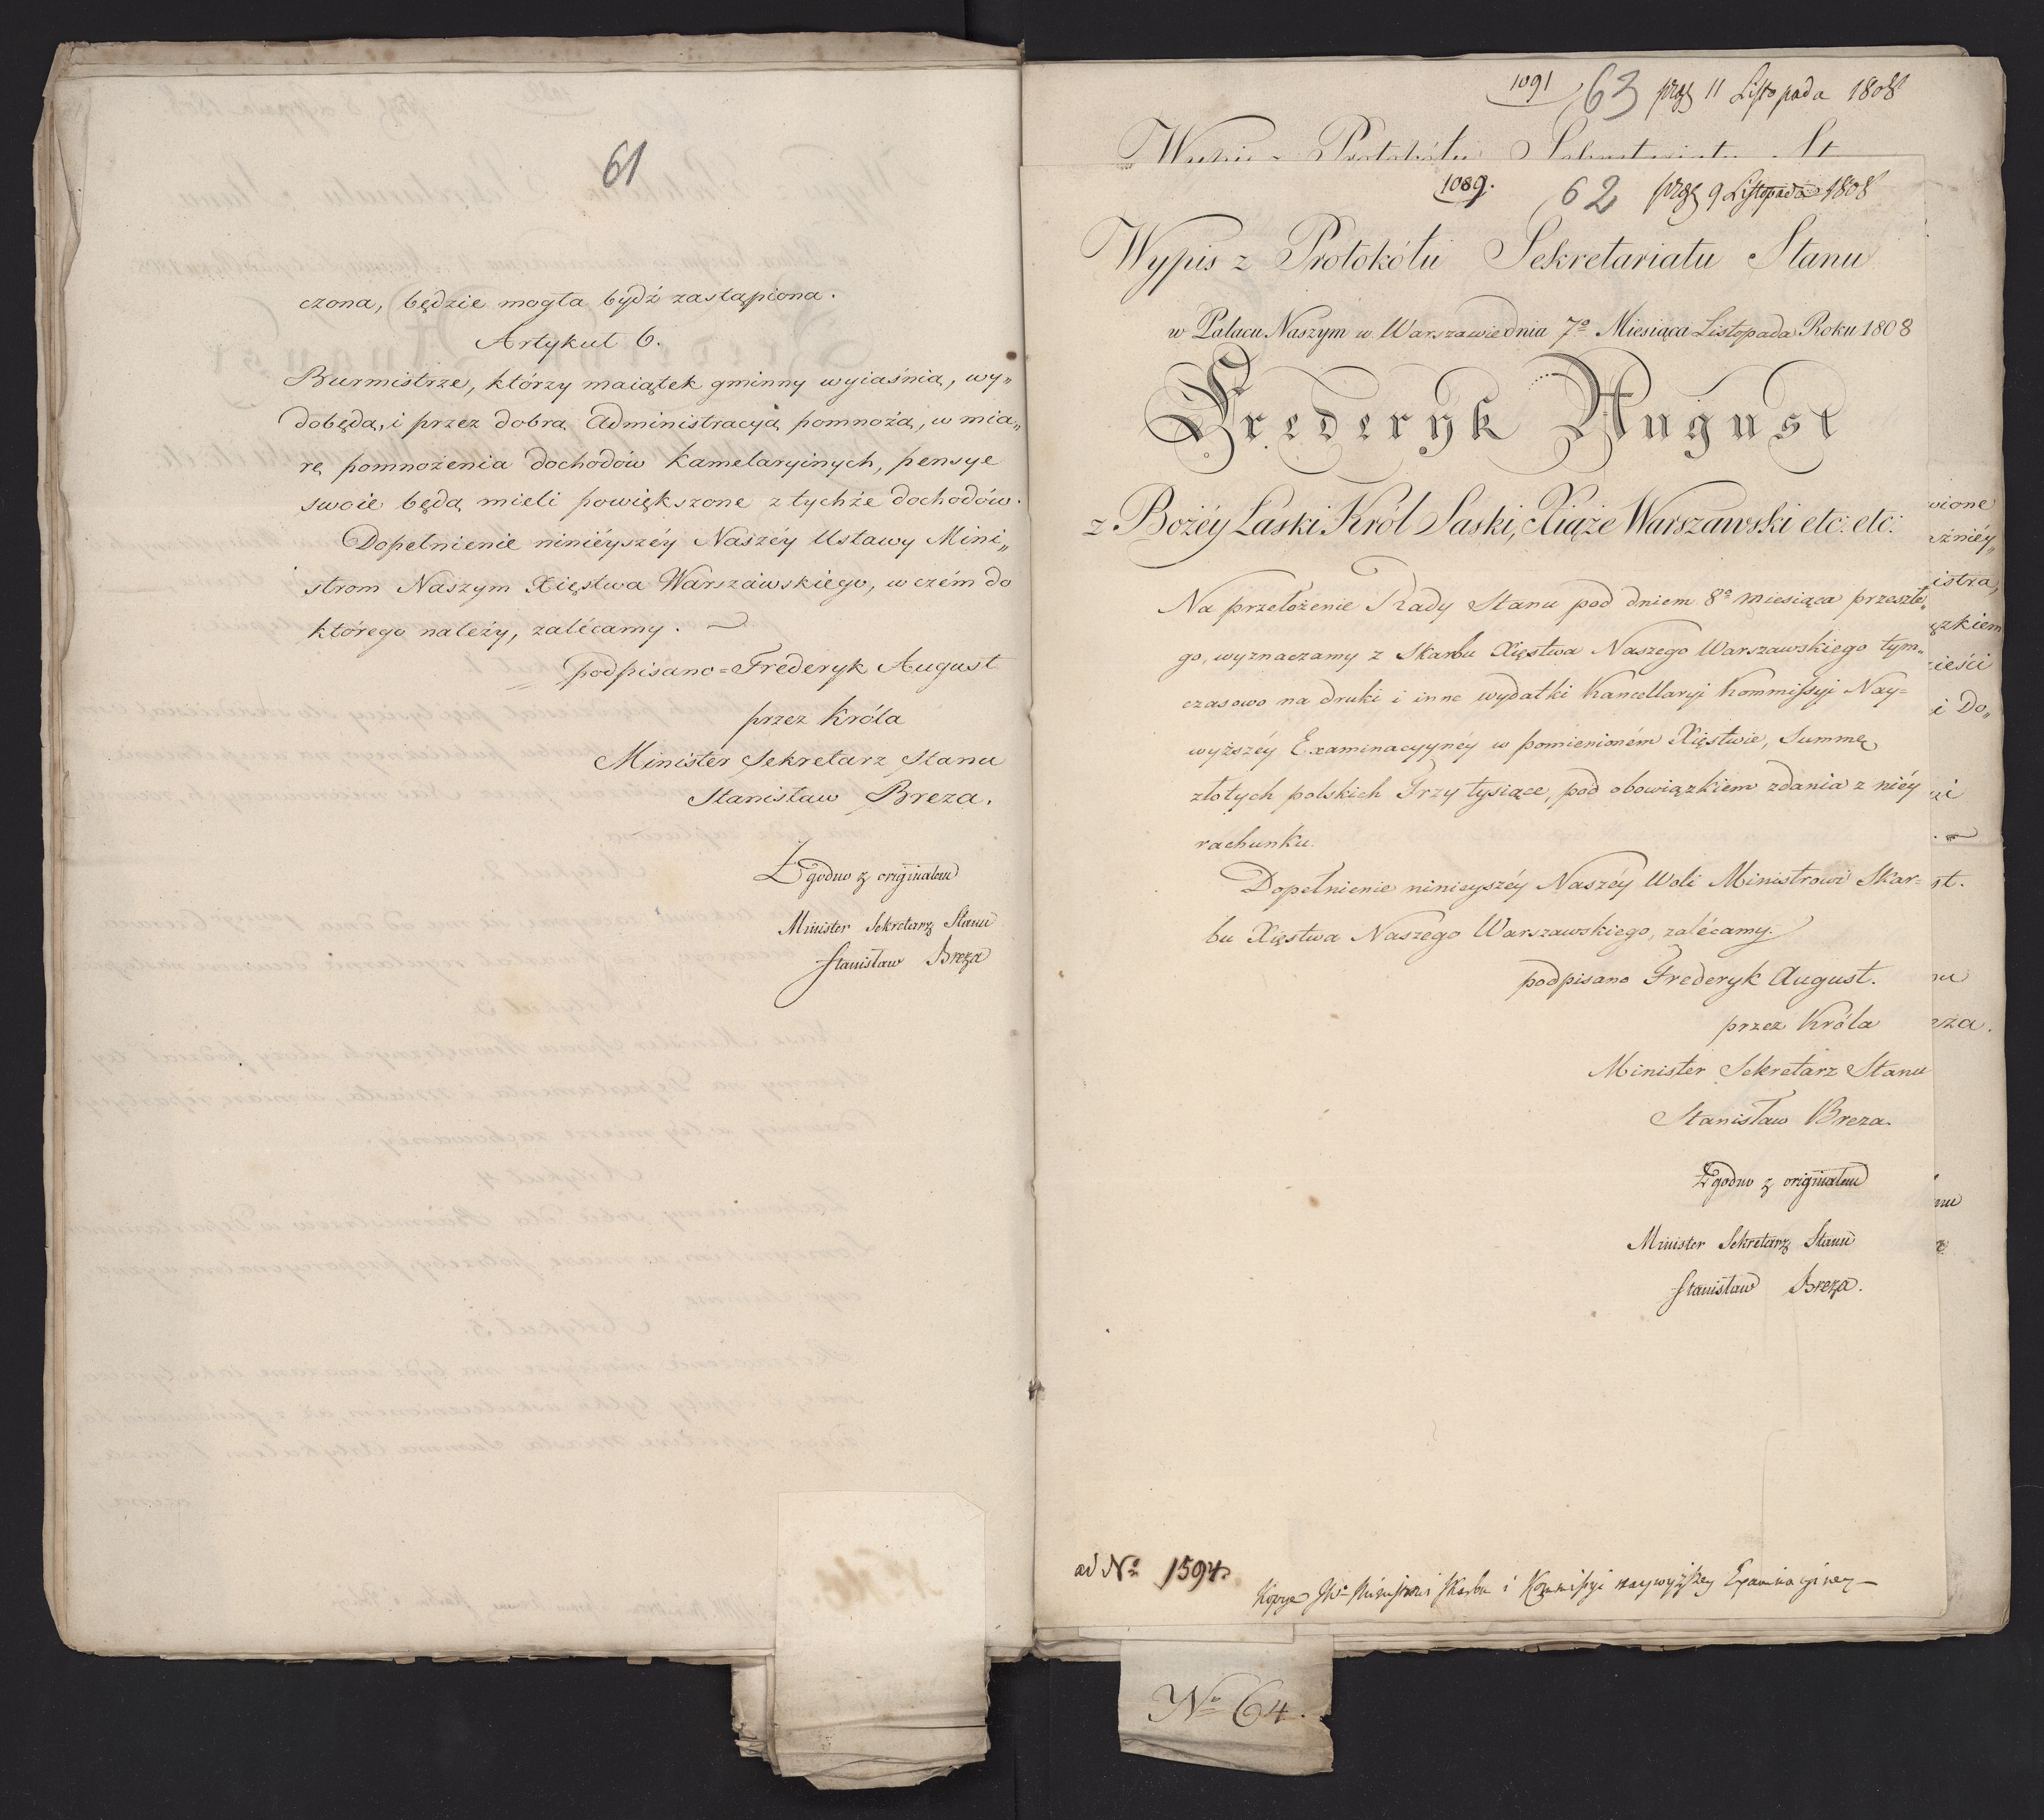 61
czona, będzie mogła bydź zastąpiona.
Artykuł 6.
Burmistrze, którzy maiątek gminny wyiaśnią, wy„
dobędą, i przez dobrą Administracyą pomnożą, w mia„
rę pomnożenia dochodów kamelaryinych, pensye
swoie będą mieli powiększone z tychże dochodów.
Dopełnienie ninièyszéy Naszéy Ustawy Mini„
strom Naszym Xięstwa Warszawskiego, w czém do
którego należy, zalécamy.
podpisano=Frederyk August
przez Króla
Minister Sekretarz Stanu
Stanisław Breza.
Zgodno z originałem
Minister Sekretarz Stanu
Stanisław Breza
1091 63 11 Listopada 1808
Wypis z Protokółu Sekretariatu St
1089. 62 9 Listopada 1808
Wypis z Protokółu Sekretariatu Stanu
w Pałacu Naszym w Warszawie dnia 7º Miesiąca Listopada Roku 1808
Frederyk August
z Bożéy Łaski Król Saski, Xiąże Warszawski etc: etc:
Na przełożenie Rady Stanu pod dniem 8º miesiąca przeszłe„
go, wyznaczamy z Skarbu Xięstwa Naszego Warszawskiego tym„
czasowo na druki i inne wydatki Kancellaryi Kommissyi Nay=
wyższéy Examinacyynéy w pomienioném Xięstwie, Summę
złotych polskich Trzy tysiące, pod obowiązkiem zdania z niéy
rachunku.
Dopełnienie ninieyszéy Naszéy Woli Ministrowi Skar=
bu Xięstwa Naszego Warszawskiego, zalécamy.
podpisano Frederyk August.
przez Króla
Minister Sekretarz Stanu
Stanisław Breza.
Zgodno z originałem
Minister Sekretarz Stanu
Stanisław Breza.
ad Nº 1594
Kopye Ministrowi Skarbu i Kommissyi naywyższey Examinacyiney
Nº 64.